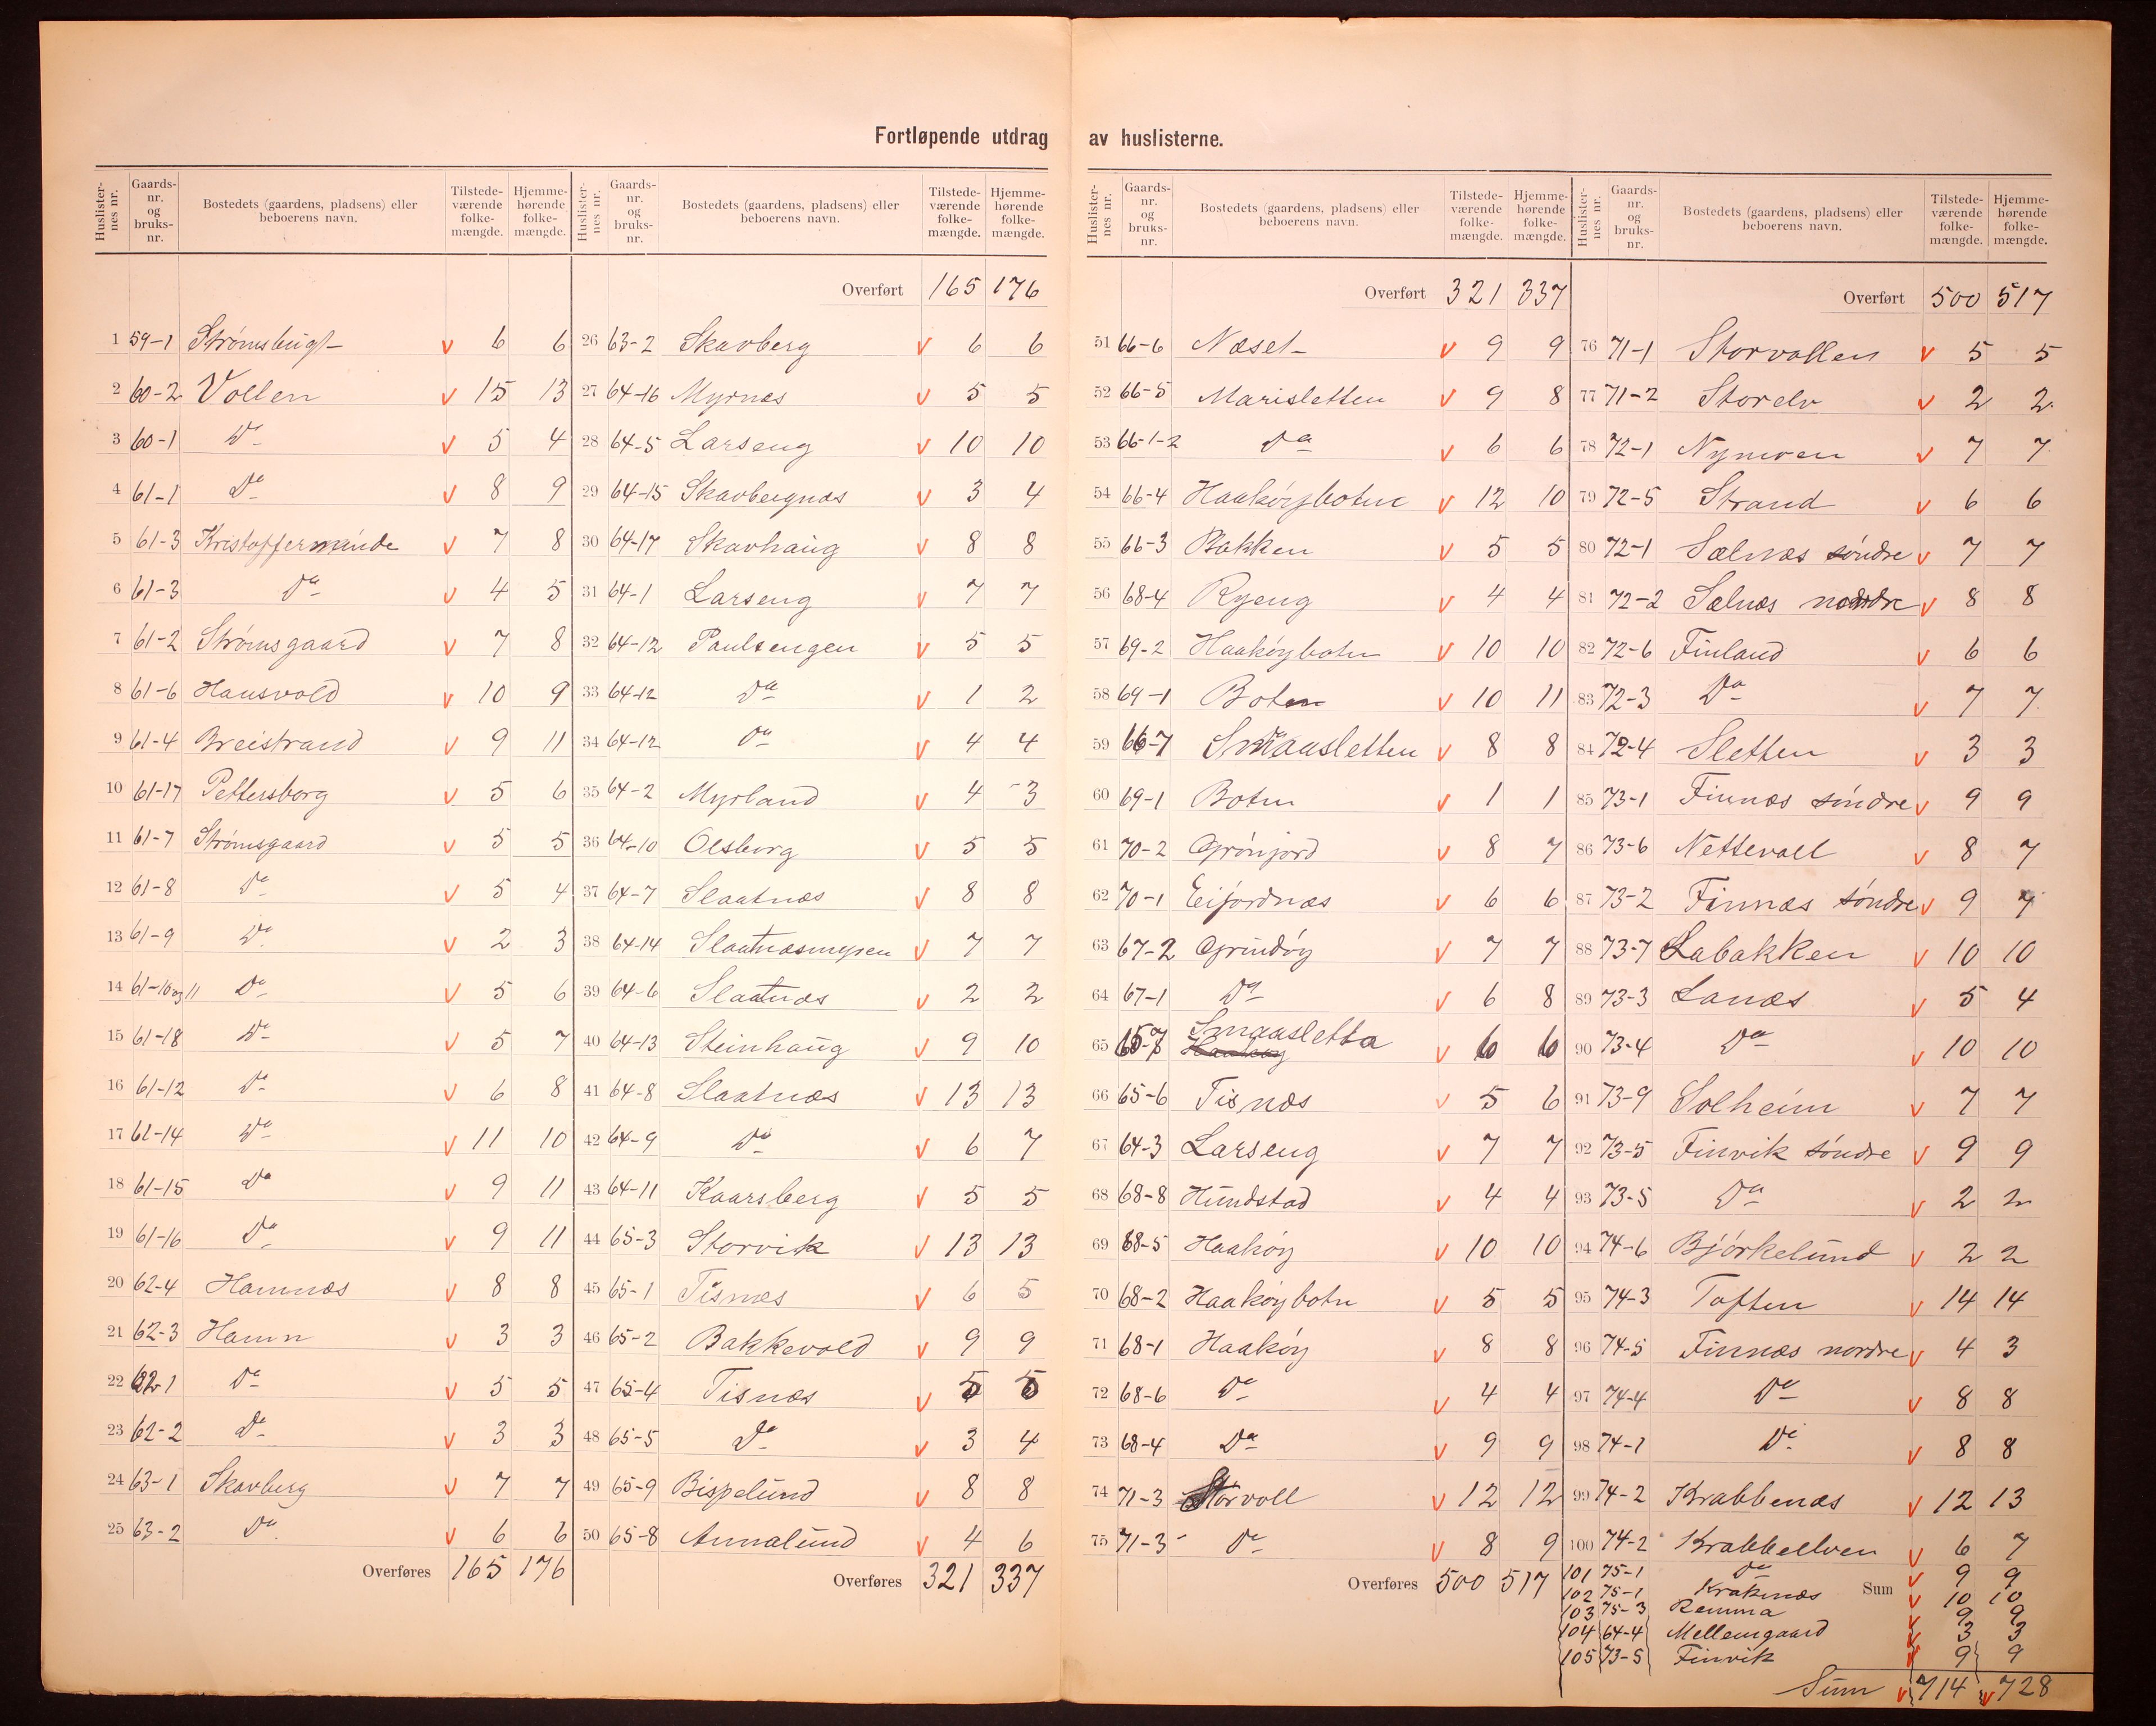 Fortløpende utdrag av huslisterne.
Huslisternes nr. Gaards-nr. og bruks-nr. Bostedets (gaardens, pladsens) eller beboerens navn. Tilstedeværende folkemængde. Hjemmehørende folkemængde.
1 59-1 Strømsbugt v 6 6
2 60-2 Vollen v 15 13
3 60-1 Do v 5 4
4 61-1 Do v 8 9
5 61-3 Kristofferminde v 7 8
6 61-3 Do v 4 5
7 61-2 Strømsgaard v 7 8
8 61-6 Hansvold v 10 9
9 61-4 Breistrand v 9 11
10 61-17 Pettersborg v 5 6
11 61-7 Strømsgaard v 5 5
12 61-8 Do v 5 4
13 61-9 Do v 2 3
14 61-10 og 11 Do v 5 6
15 61-18 Do v 5 7
16 61-12 Do v 6 8
17 61-14 Do v 11 10
18 61-15 Do v 9 11
19 61-16 Do v 9 11
20 62-4 Hamnæs v 8 8
21 62-3 Hamn v 3 3
22 62-1 Do v 5 5
23 62-2 Do v 3 3
24 63-1 Skavberg v 7 7
25 63-2 Do v 6 6
Overføres 165 176
Huslisternes nr. Gaards-nr. og bruks-nr. Bostedets (gaardens, pladsens) eller beboerens navn. Tilstedeværende folkemængde. Hjemmehørende folkemængde.
Overført 165 176
26 63-2 Skavberg v 6 6
27 64-16 Myrnæs v 5 5
28 64-5 Larseng v 10 10
29 64-15 Skavbergnæs v 3 4
30 64-17 Skavhaug v 8 8
31 64-1 Larseng v 7 7
32 64-12 Paulsengen v 5 5
33 64-12 Do v 1 2
34 64-12 Do v 4 4
35 64-2 Myrland v 4 3
36 64-10 Olsborg v 5 5
37 64-7 Slaatnæs v 8 8
38 64-14 Slaatnæsmyren v 7 7
39 64-6 Slaatnæs v 2 2
40 64-13 Steinhaug v 9 10
41 64-8 Slaatnæs v 13 13
42 64-9 Do v 6 7
43 64-11 Kaarsberg v 5 5
44 65-3 Storvik v 13 13
45 65-1 Tisnæs v 6 5
46 65-2 Bakkevold v 9 9
47 65-4 Tisnæs v 5 5
48 65-5 Do v 3 4
49 65-9 Bispelund v 8 8
50 65-8 Annalund v 4 6
Overføres 321 337
Huslisternes nr. Gaards-nr. og bruks-nr. Bostedets (gaardens, pladsens) eller beboerens navn. Tilstedeværende folkemængde. Hjemmehørende folkemængde.
Overført 321 337
51 66-6 Næset v 9 9
52 66-5 Marisletten v 9 8
53 66-1-2 Do v 6 6
54 66-4 Haakøybotn v 12 10
55 66-3 Bakken v 5 5
56 68-4 Ryeng v 4 4
57 69-2 Haakøybotn v 10 10
58 69-1 Botn v 10 11
59 66-7 Smaasletten v 8 8
60 69-1 Botn v 1 1
61 70-2 Grønjord v 8 7
62 70-1 Eifjordnæs v 6 6
63 67-2 Grindøy v 7 7
64 67-1 Do v 6 8
65 65-7 Smaasletta v 6 6
66 65-6 Tisnæs v 5 6
67 64-3 Larseng v 7 7
68 68-8 Hundstad v 4 4
69 68-5 Haakøy v 10 10
70 68-2 Haakøybotn v 5 5
71 68-1 Haakøy v 8 8
72 68-6 Do v 4 4
73 68-4 Do v 9 9
74 71-3 Storvoll v 12 12
75 71-3 Do v 8 9
Overføres 500 517
Huslisternes nr. Gaards-nr. og bruks-nr. Bostedets (gaardens, pladsens) eller beboerens navn. Tilstedeværende folkemængde. Hjemmehørende folkemængde.
Overført 500 517
76 71-1 Storvollen v 5 5
77 71-2 Storelv v 2 2
78 72-1 Nymoen v 7 7
79 72-5 Strand v 6 6
80 72-1 Sælnæs søndre v 7 7
81 72-2 Sælnæs nordre v 8 8
82 72-6 Finland v 6 6
83 72-3 Do v 7 7
84 72-4 Sletten v 3 3
85 73-1 Finnæs søndre v 9 9
86 73-6 Nettevoll v 8 7
87 73-2 Finnæs søndre v 9 7
88 73-7 Labakken v 10 10
89 73-3 Lanæs v 5 4
90 73-4 Do v 10 10
91 73-9 Solheim v 7 7
92 73-5 Finvik søndre v 9 9
93 73-5 Do v 2 2
94 74-6 Bjørkelund v 2 2
95 74-3 Toften v 14 14
96 74-5 Finnæs nordre v 4 3
97 74-4 Do v 8 8
98 74-1 Do v 8 8
99 74-2 Krabbenæs v 12 13
100 74-2 Krabbelven v 6 7
101 75-1 Do v 9 9
Sum
102 75-1 Kraknæs v 10 10
103 75-3 Remma v 9 9
104 64-4 Mellemgaard v 3 3
105 73-5 Finvik v 9 9
Sum v 714 v 728